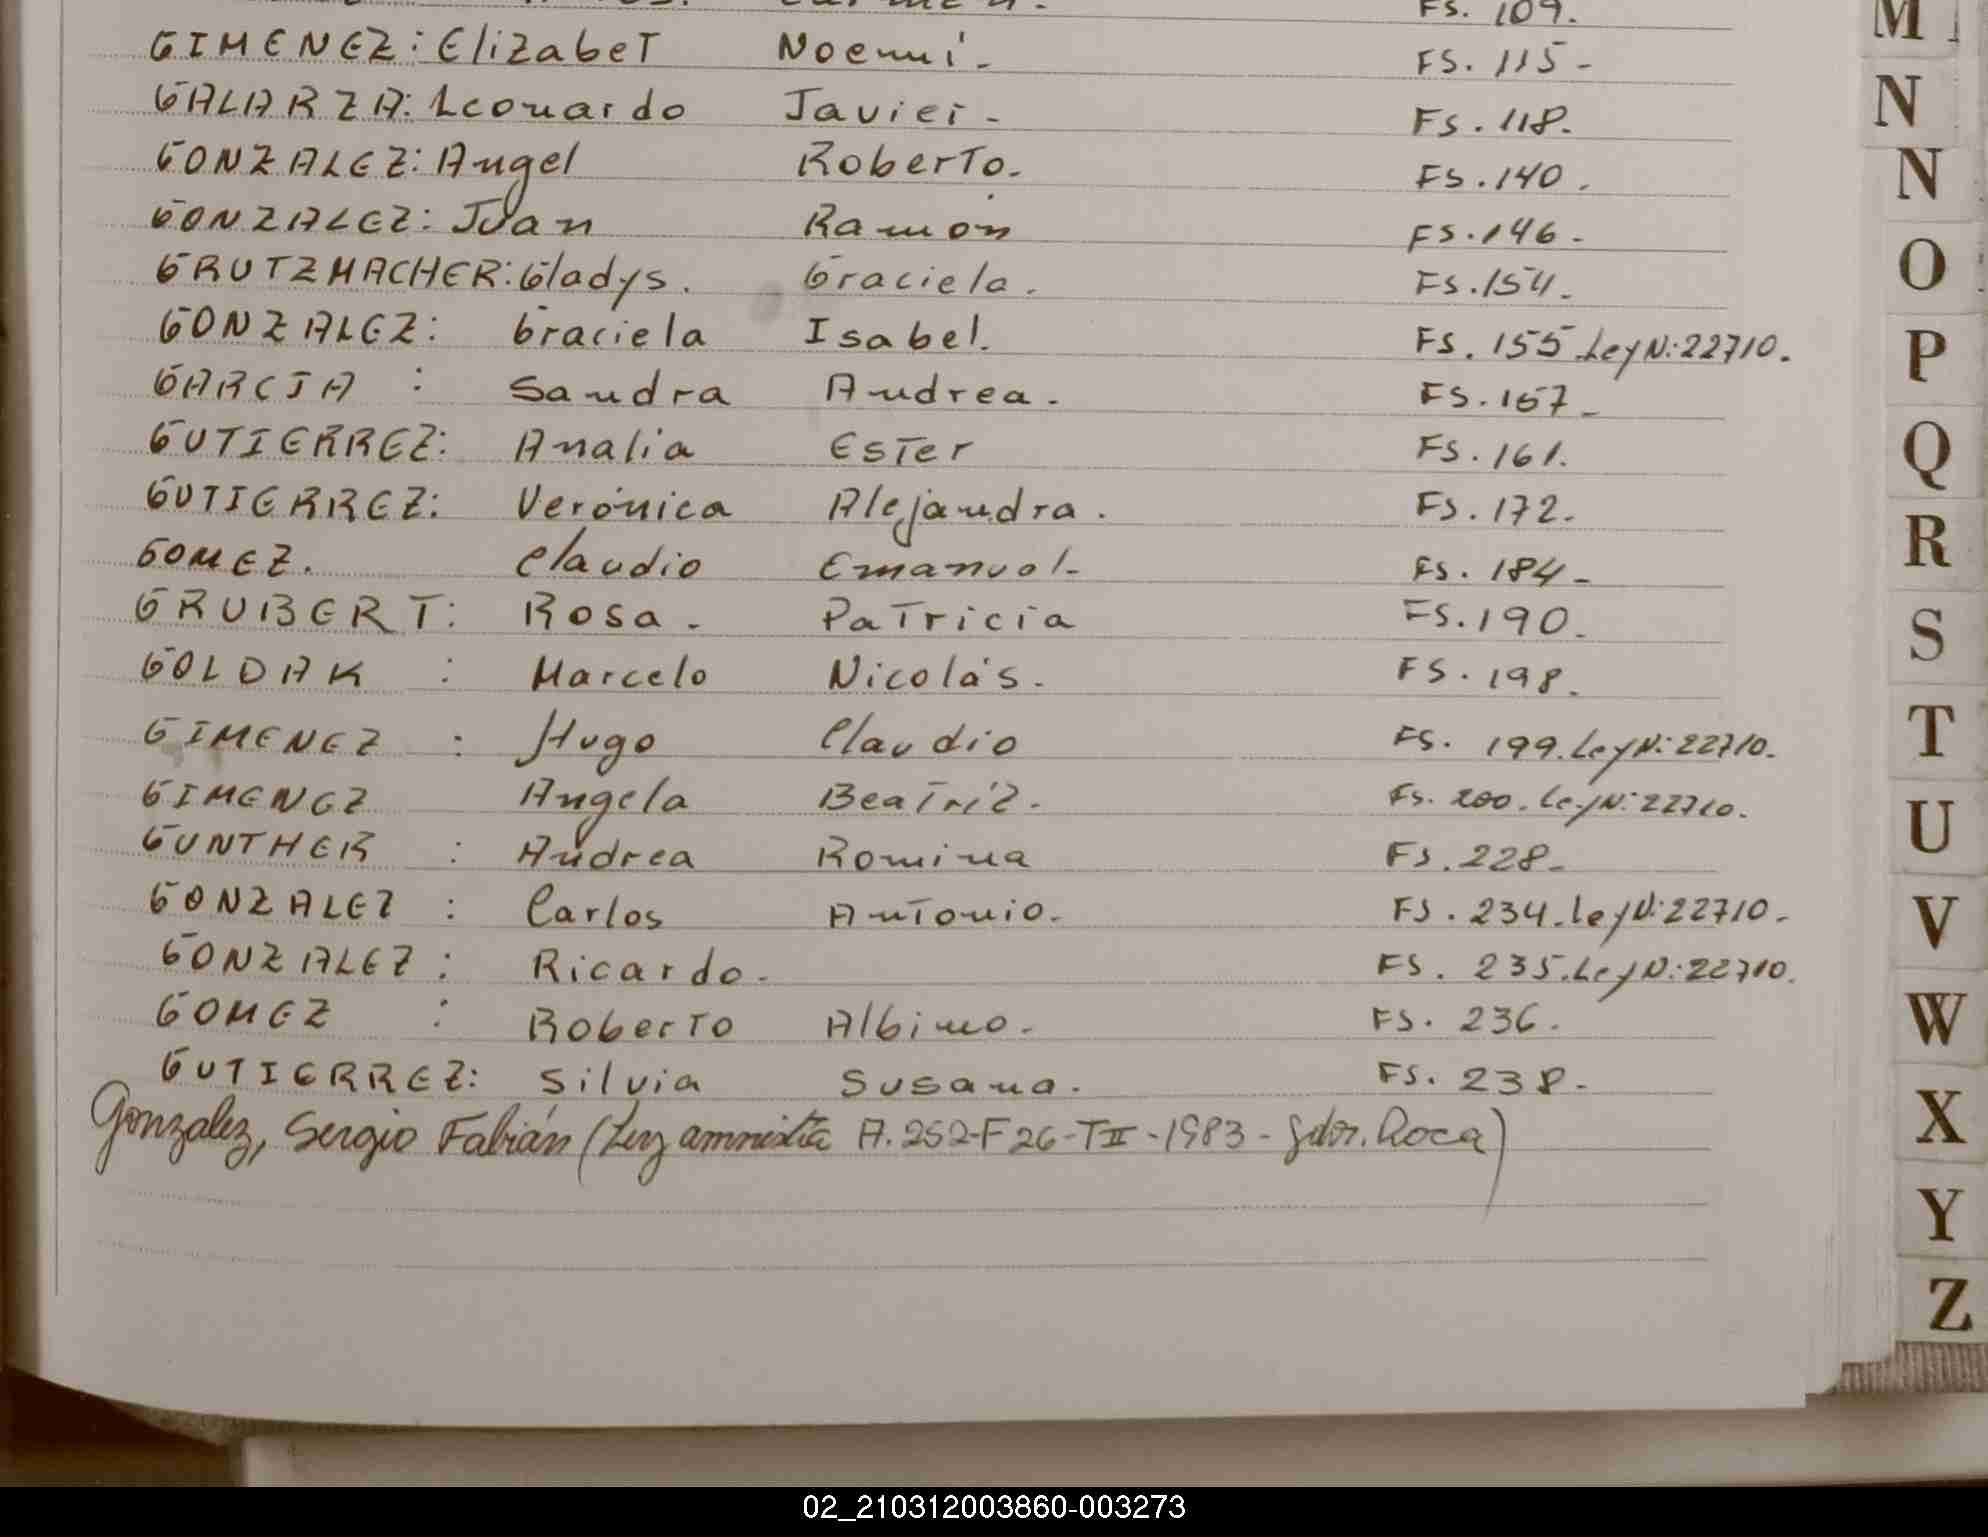 Fs. 109.
GIMENEZ: ElizabeT Noemí. FS. 115-
GALARZA: Leonardo Javier. Fs. 118.
GONZALEZ: Angel RoberTo. Fs. 140.
GONZALEZ: Juan Ramón Fs. 146.
GRUTZMACHER: Gladys. Graciela. Fs. 154.
GONZALEZ: Graciela Isabel. Fs. 155 Ley N: 22710.
GARCIA : Sandra Andrea. Fs. 157-
GUTIERREZ: Analia EsTer Fs. 161.
GUTIERREZ: Verónica Alejandra. Fs. 172.
GOMEZ. Claudio Emanuel- Fs. 184-
GRUBERT: Rosa. PaTricia Fs. 190.
GOLDAK : Marcelo Nicolás. FS. 198.
GIMENEZ : Hugo Claudio Fs. 199. Ley N: 22710.
GIMENEZ Angela BeaTriz. Fs. 200. Ley N: 22710.
GUNTHER : Andrea Romina Fs. 228-
GONZALEZ : Carlos AnTonio. Fs. 234. Ley N: 22710.
GONZALEZ : Ricardo. FS. 235. Ley N: 22710.
GOMEZ : RoberTo Albino. FS. 236.
GUTIERREZ: Silvia Susana. FS. 238.
Gonzalez, Sergio Fabián (Ley amnistía A. 252-F 26-T II-1983- Gdor. Roca)
M
N
N
O
P
Q
R
S
T
U
V
W
X
Y
Z
02_210312003860-003273